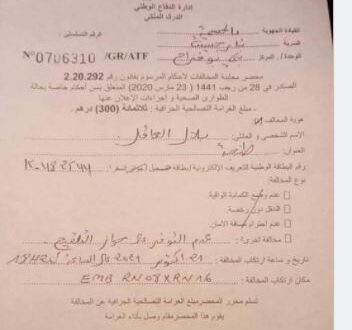 إدارة الدفاع الوطني
الدرك الملكي
القيادة الجهوية
السرية
الوحدة / المركز
الرقم التسلسلي
N°0706310 /GR/ATF
محضر معاينة المخالفات لأحكام المرسوم بقانون رقم 2.20.292
الصادر في 28 من رجب 1441 (23 مارس 2020) المتعلق بسن أحكام خاصة بحالة
الطوارئ الصحية وإجراءات الإعلان عنها
- مبلغ الغرامة التصالحية الجزافية : ثلاثمائة (300) درهم.
هوية المخالف
الاسم الشخصي و العائلي :
العنوان :
رقم البطاقة الوطنية للتعريف الإلكترونية/بطاقة التسجيل
نوع المخالفة:
عدم وضع الكمامة الواقية
التنقل دون رخصة
عدم احترام مسافة الأمان
مخالفة أخرى: عدم التوفر على جواز التلقيح
تاريخ و ساعة ارتكاب المخالفة : 21 أكتوبر 2021 على الساعة
مكان ارتكاب المخالفة : EMB RN08XRN16
تسلم محرر المحضر مبلغ الغرامة التصالحية الجزافية عن المخالفة
يقوم هذا المحضر مقام وصل بأداء الغرامة